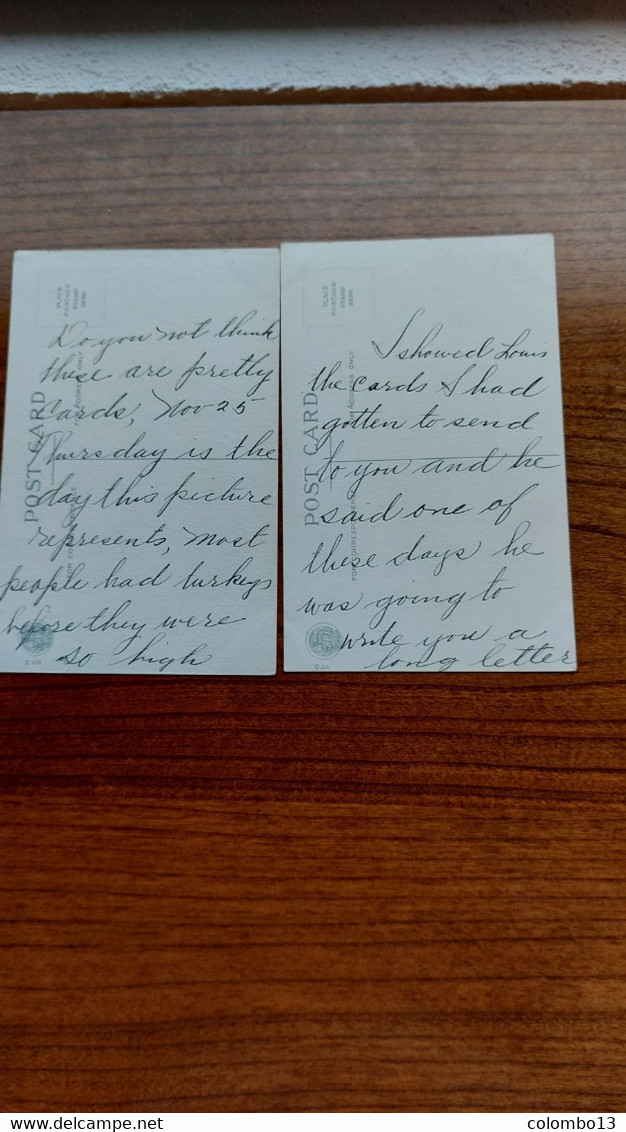 PLACE
POSTAGE
STAMP
HERE
POST CARD
FOR ADDRESS ONLY
Do you not think
these are pretty
cards, Nov 25
Thursday is the
day this picture
represents, most
people had turkeys
before they were
so high
PLACE
POSTAGE
STAMP
HERE
POST CARD
FOR ADDRESS ONLY
FOR CORRESPONDENCE
I showed Louis
the cards I had
gotten to send
to you and he
said one of
these days he
was going to
write you a
long letter
www.delcampe.net
colombo13